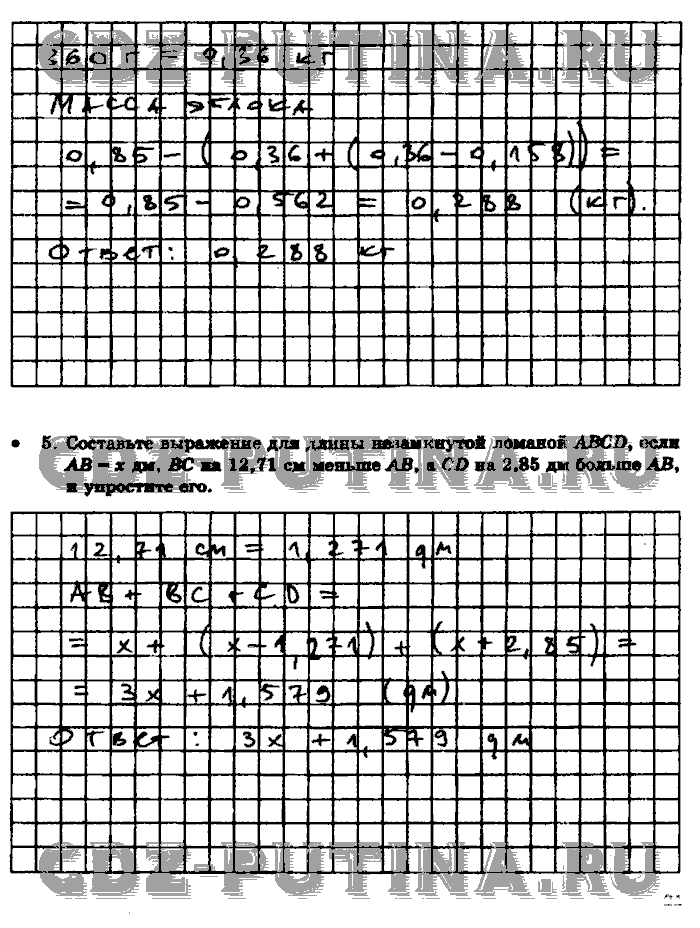 GDZ-PUTINA.RU
360 г = 0,36 кг
Масса яблока
0,85 - (0,36 + (0,36 - 0,158)) =
= 0,85 - 0,562 = 0,288 (кг).
Ответ: 0,288 кг
• 5. Составьте выражение для длины незамкнутой ломаной ABCD, если
AB = x дм, BC на 12,71 см меньше AB, а CD на 2,85 дм больше AB,
и упростите его.
GDZ-PUTINA.RU
12,71 см = 1,271 дм
AB + BC + CD =
= x + (x - 1,271) + (x + 2,85) =
= 3x + 1,579 (дм)
Ответ: 3x + 1,579 дм
GDZ-PUTINA.RU